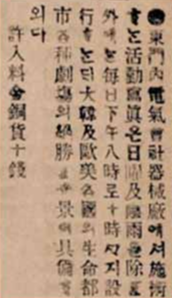 ●東門內電氣會社器械廠에셔施術
ᄒᆞ는活動寫眞은日曜及陰雨를除ᄒᆞᆫ
外에는每日下午八時로十時ᄭᆞ지設
行ᄒᆞ는ᄃᆡ大韓及歐美各國의生命都
市各種劇場의絶勝ᄒᆞᆫ光景이具備ᄒᆞ
외다
許入料金銅貨十錢